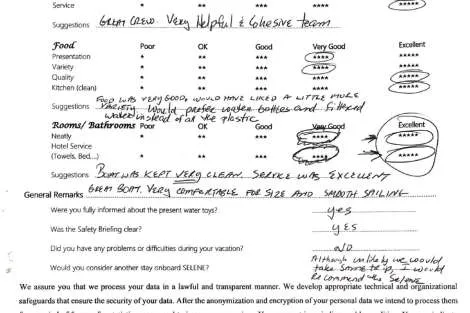 Service * ** *** **** *****
Suggestions GREAT CREW VERY Helpful & Cohesive team
Food Poor OK Good Very Good Excellent
Presentation * ** *** **** *****
Variety * ** *** **** *****
Quality * ** *** **** *****
Kitchen (clean) * ** *** **** *****
FOOD WAS VERY GOOD, WOULD HAVE LIKED A LITTLE MORE
Suggestions VARIETY. Would prefer water bottles and filtered
water instead of all the plastic
Rooms/Bathrooms Poor OK Good Very Good Excellent
Neatly * ** *** **** *****
Hotel Service
(Towels, Bed...) * ** *** **** *****
Suggestions BOAT WAS KEPT VERY CLEAN. SERVICE WAS EXCELLENT
General Remarks GREAT BOAT. VERY COMFORTABLE FOR SIZE AND SMOOTH SAILING
Were you fully informed about the present water toys? yes
Was the Safety Briefing clear? yES
Did you have any problems or difficulties during your vacation? NO
Would you consider another stay onboard SELENE? Although unlikely we would
take same trip, I would
Recommend the Selene
We assure you that we process your data in a lawful and transparent manner. We develop appropriate technical and organizational
safeguards that ensure the security of your data. After the anonymization and encryption of your personal data we intend to process them